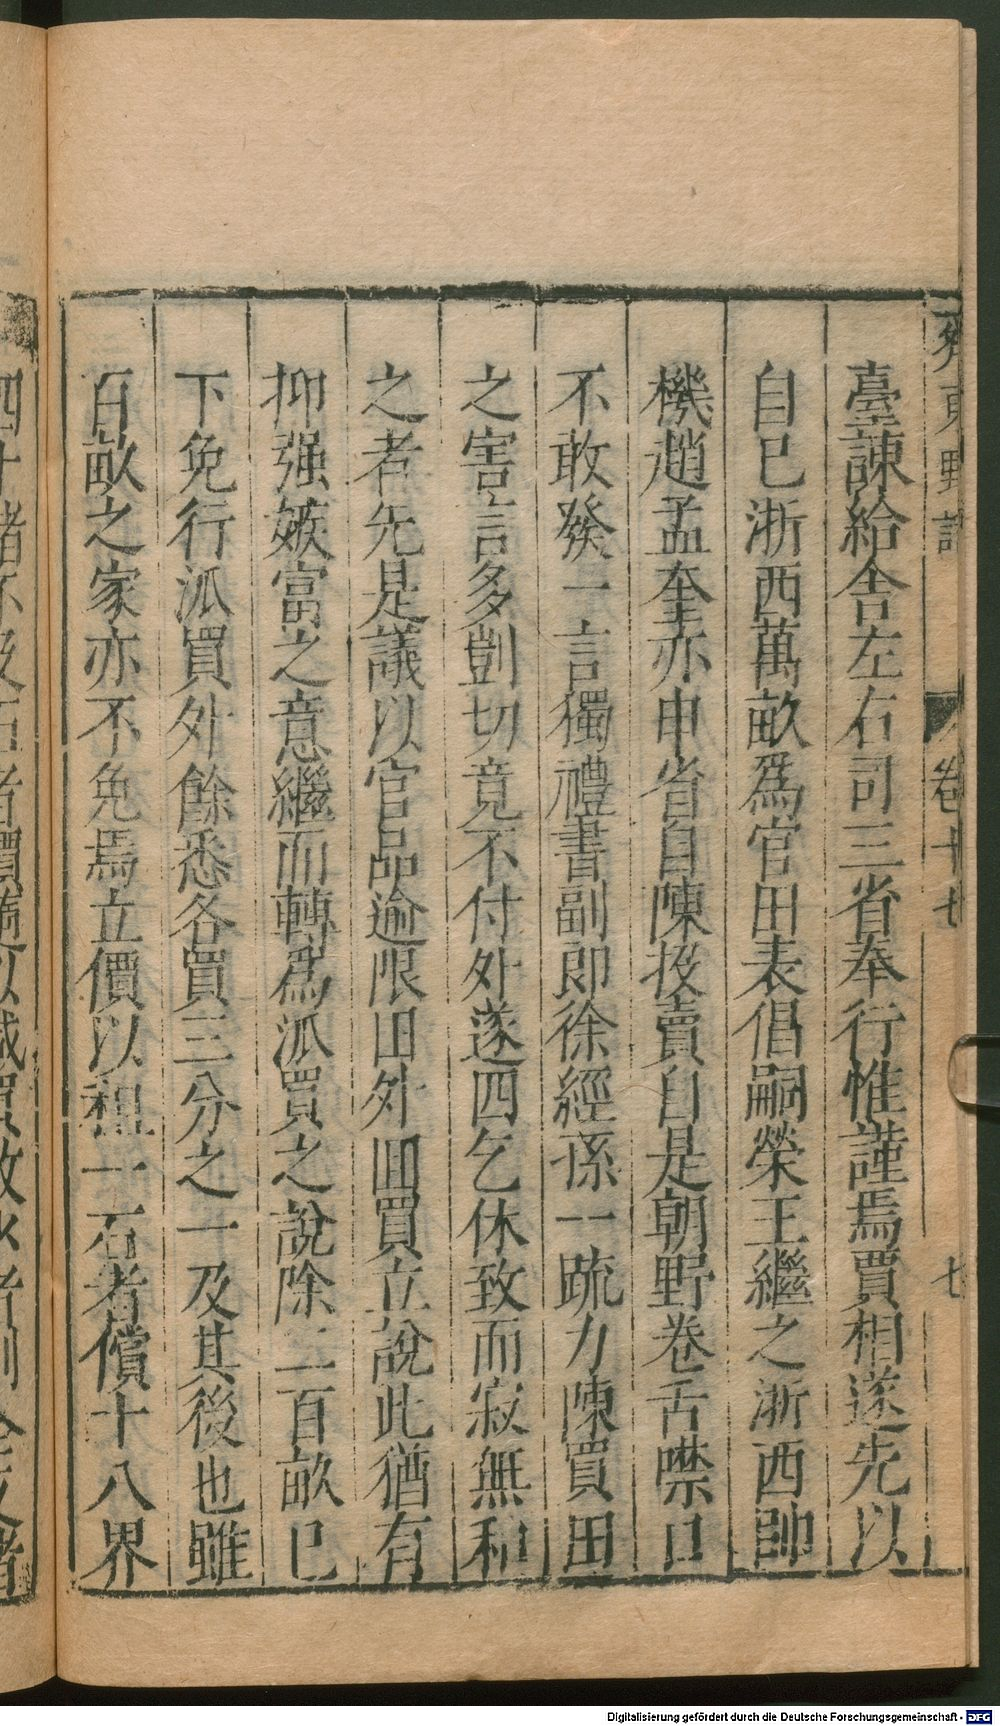 齊東野語 卷十七 七
臺諫給舍左右司三省奉行惟謹焉賈相遂先以
自己浙西萬畝爲官田表倡嗣榮王繼之浙西帥
機趙孟奎亦申省自陳投賣自是朝野卷舌噤口
不敢發一言獨禮書副卽徐經孫一疏力陳買田
之害言多剴切竟不付外遂四乞休致而寂無和
之者先是議以官品逾限田外回買立說此猶有
抑强嫉富之意繼而轉爲派買之說除二百畝已
下免行派買外餘悉各買三分之一及其後也雖
百畝之家亦不免焉立價以租一石者償十八界
四十楮不及石者價隨以減買數少者則全支楮
Digitalisierung gefördert durch die Deutsche Forschungsgemeinschaft - DFG